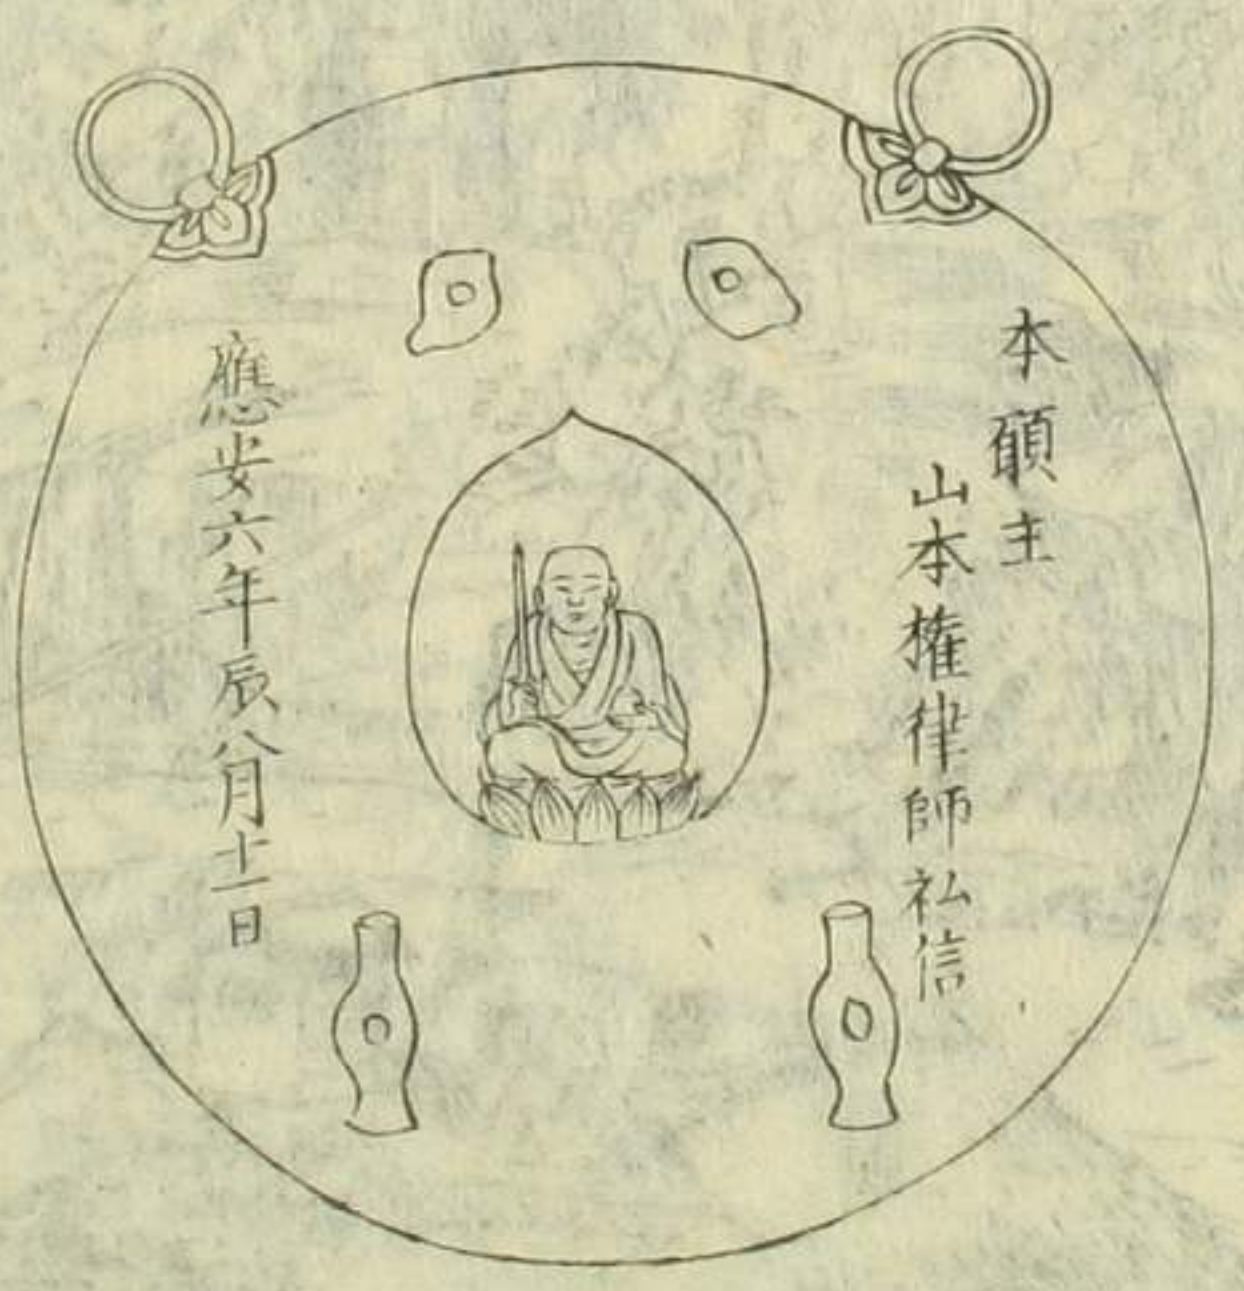 本願主
山本権律師弘信
應安六年辰八月十一日